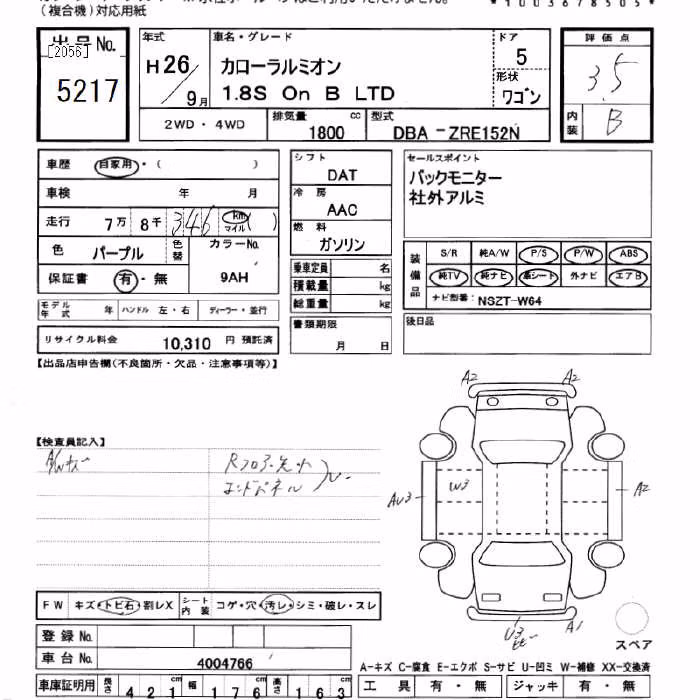 （複合機）対応用紙
*1003678505*
出品No.
[2056]
5217
年式
H26／9月
車名・グレード
カローラルミオン
1.8S On B LTD
ドア
5
形状
ワゴン
評価点
3.5
内装
B
2WD・4WD
排気量
1800 cc
型式
DBA-ZRE152N
車歴 自家用・（ ）
車検 年 月
走行 7万 8千 346 km マイル ( )
色 パープル 色替 カラーNo.
9AH
保証書 有・無
モデル年式 年 ハンドル 左・右 ディーラー・並行
リサイクル料金 10,310 円 預託済
シフト
DAT
冷房
AAC
燃料
ガソリン
乗車定員 名
積載量 kg
総重量 kg
書類期限
月 日
セールスポイント
バックモニター
社外アルミ
装備品
S/R 純A/W P/S P/W ABS
純TV 純ナビ 革シート 外ナビ エアB
ナビ型番: NSZT-W64
後日品
【出品店申告欄(不良箇所・欠品・注意事項等)】
【検査員記入】
A/Wキズ
Rフロア・先小
エンドパネル
A2 A2
AU3 W3 A2
U3 A1
スペア
FW キズ・トビ石・割レX シート内装 コゲ・穴・汚レ・シミ・破レ・スレ
登録No.
車台No. 4004766
車庫証明用 長さ 421 cm 幅 176 cm 高さ 163 cm
A-キズ C-腐食 E-エクボ S-サビ U-凹ミ W-補修 XX-交換済
工具 有・無 ジャッキ 有・無